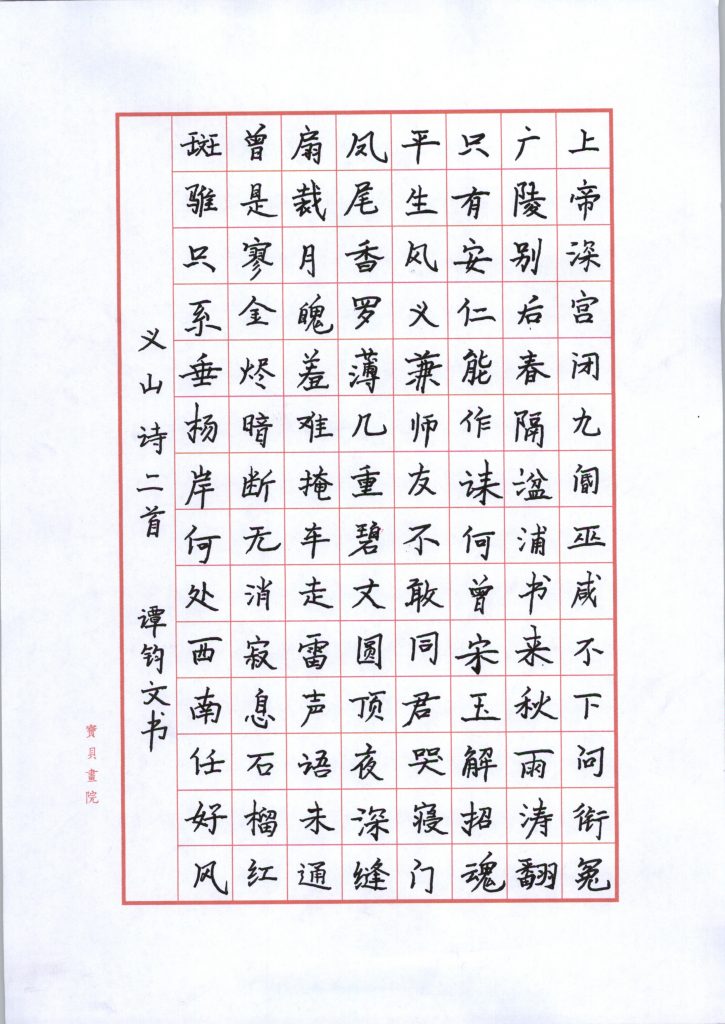 上帝深宫闭九阍巫咸不下问衔冤
广陵别后春隔湓浦书来秋雨涛翻
只有安仁能作诔何曾宋玉解招魂
平生风义兼师友不敢同君哭寝门
凤尾香罗薄几重碧丈圆顶夜深缝
扇裁月魄羞难掩车走雷声语未通
曾是寥金烬暗断无消寂息石榴红
斑骓只系垂杨岸何处西南任好风
义山诗二首 谭钧文书
寶貝畫院